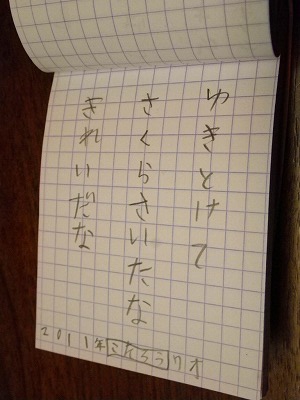 ゆきとけて
さくらさいたな
きれいだな
2011年 こたろう